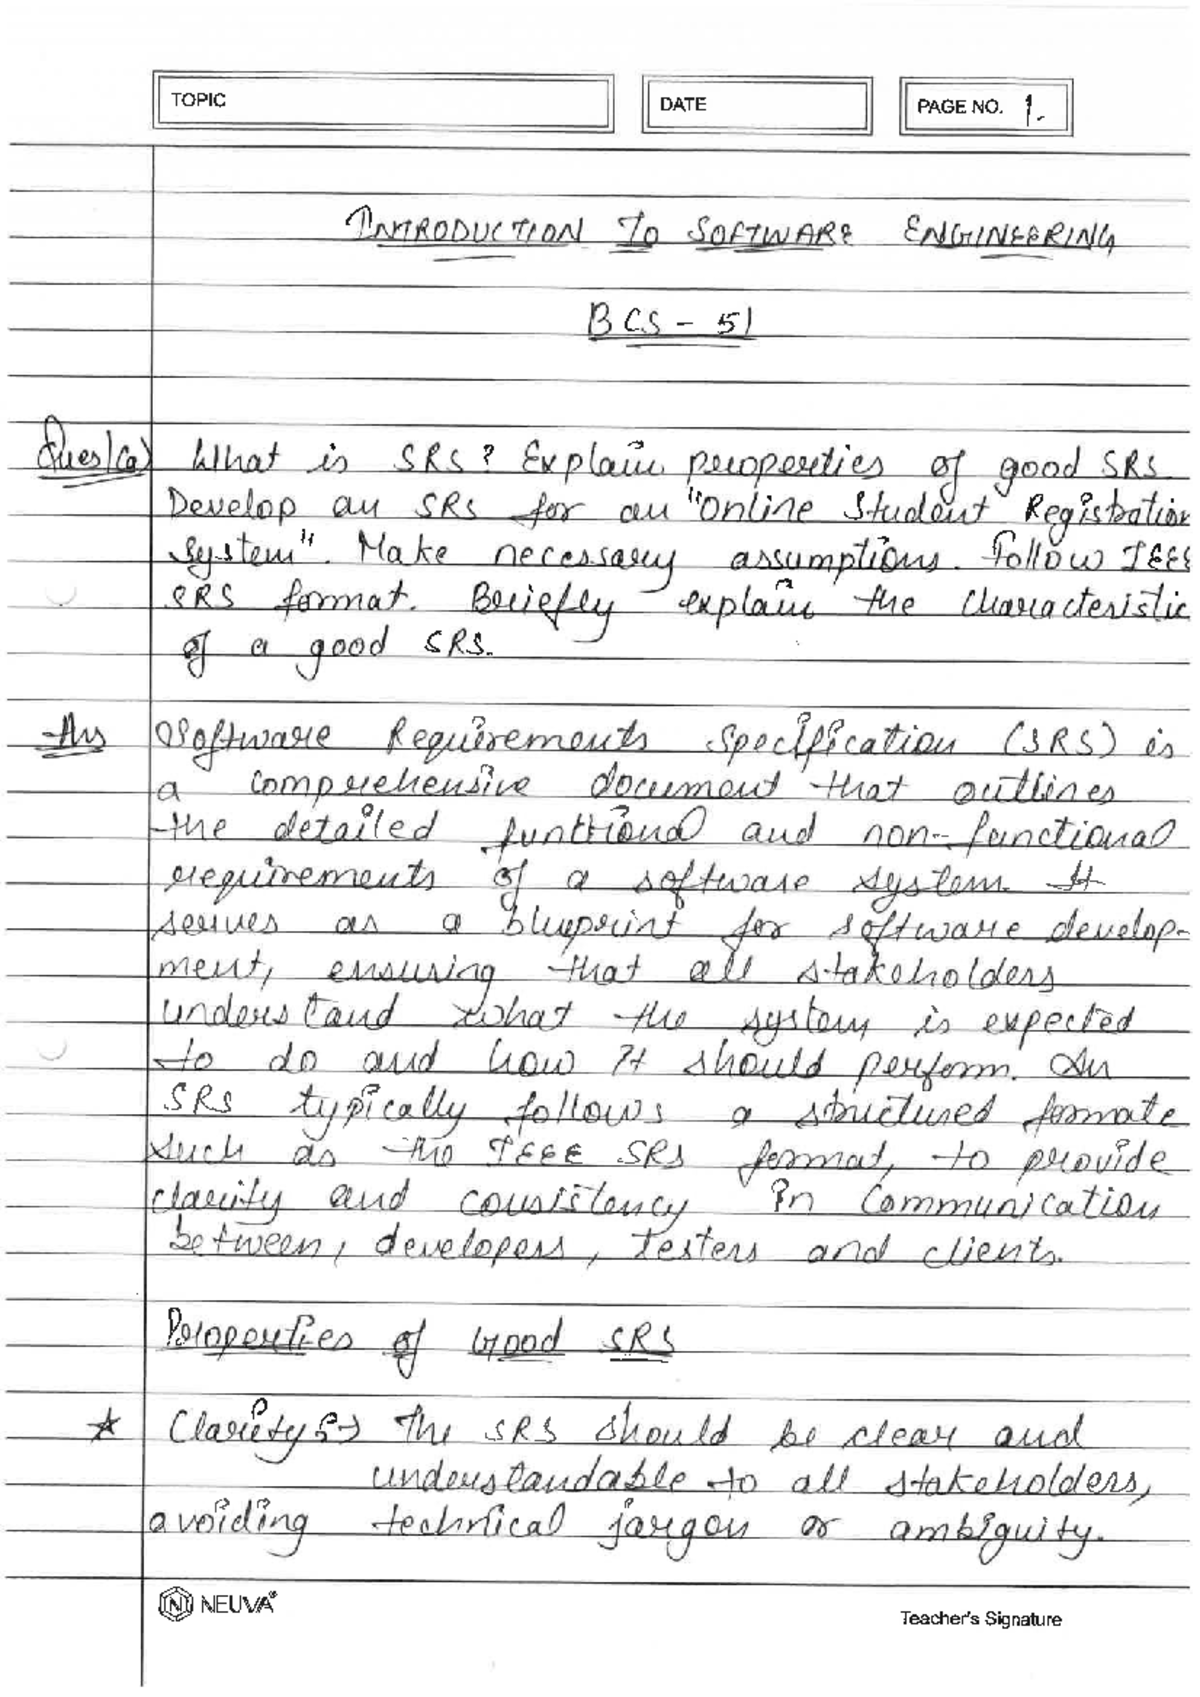 TOPIC
DATE
PAGE NO. 1.
INTRODUCTION TO SOFTWARE ENGINEERING
BCS - 51
Ques1(a) What is SRS? Explain properties of good SRS.
Develop an SRS for an "Online Student Registration
System". Make necessary assumptions. Follow IEEE
SRS format. Briefly explain the characteristic
of a good SRS.
Ans Software Requirements Specification (SRS) is
a comprehensive document that outlines
the detailed funtional and non-functional
requirements of a software system. It
serves as a blueprint for software develop-
ment, ensuring that all stakeholders
understand what the system is expected
to do and how it should perform. An
SRS typically follows a structured formate
such as the IEEE SRS format, to provide
clarity and consistency in communication
between, developers, testers and clients.
Properties of Good SRS
★ Clariety :→ The SRS should be clear and
understandable to all stakeholders,
avoiding technical jargon or ambiguity.
NEUVA®
Teacher's Signature